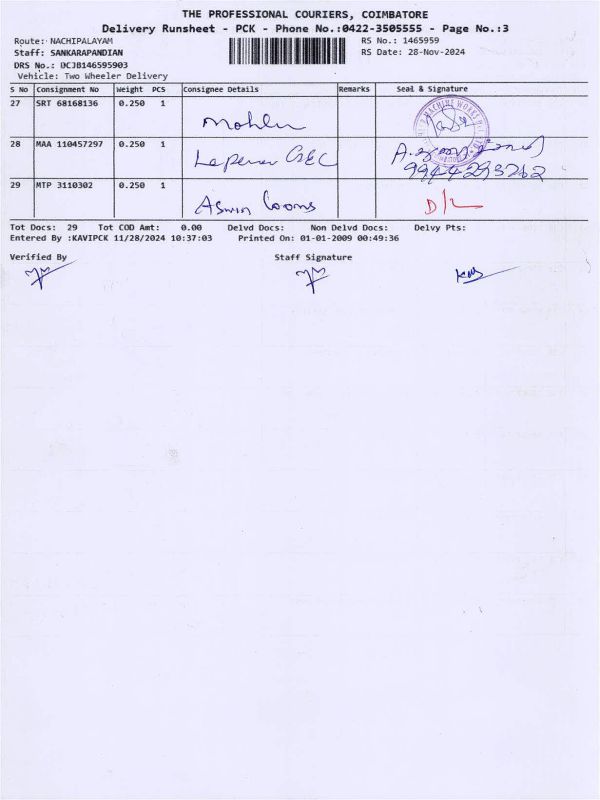 THE PROFESSIONAL COURIERS, COIMBATORE
Delivery Runsheet - PCK - Phone No.:0422-3505555 - Page No.:3
Route: NACHIPALAYAM RS No.: 1465959
Staff: SANKARAPANDIAN RS Date: 28-Nov-2024
DRS No.: DCJB146595903
Vehicle: Two Wheeler Delivery
S No Consignment No Weight PCS Consignee Details Remarks Seal & Signature
27 SRT 68168136 0.250 1
28 MAA 110457297 0.250 1 GEC
9944293262
29 MTP 3110302 0.250 1 Aswin Looms D/L
Tot Docs: 29 Tot COD Amt: 0.00 Delvd Docs: Non Delvd Docs: Delvy Pts:
Entered By :KAVIPCK 11/28/2024 10:37:03 Printed On: 01-01-2009 00:49:36
Verified By Staff Signature